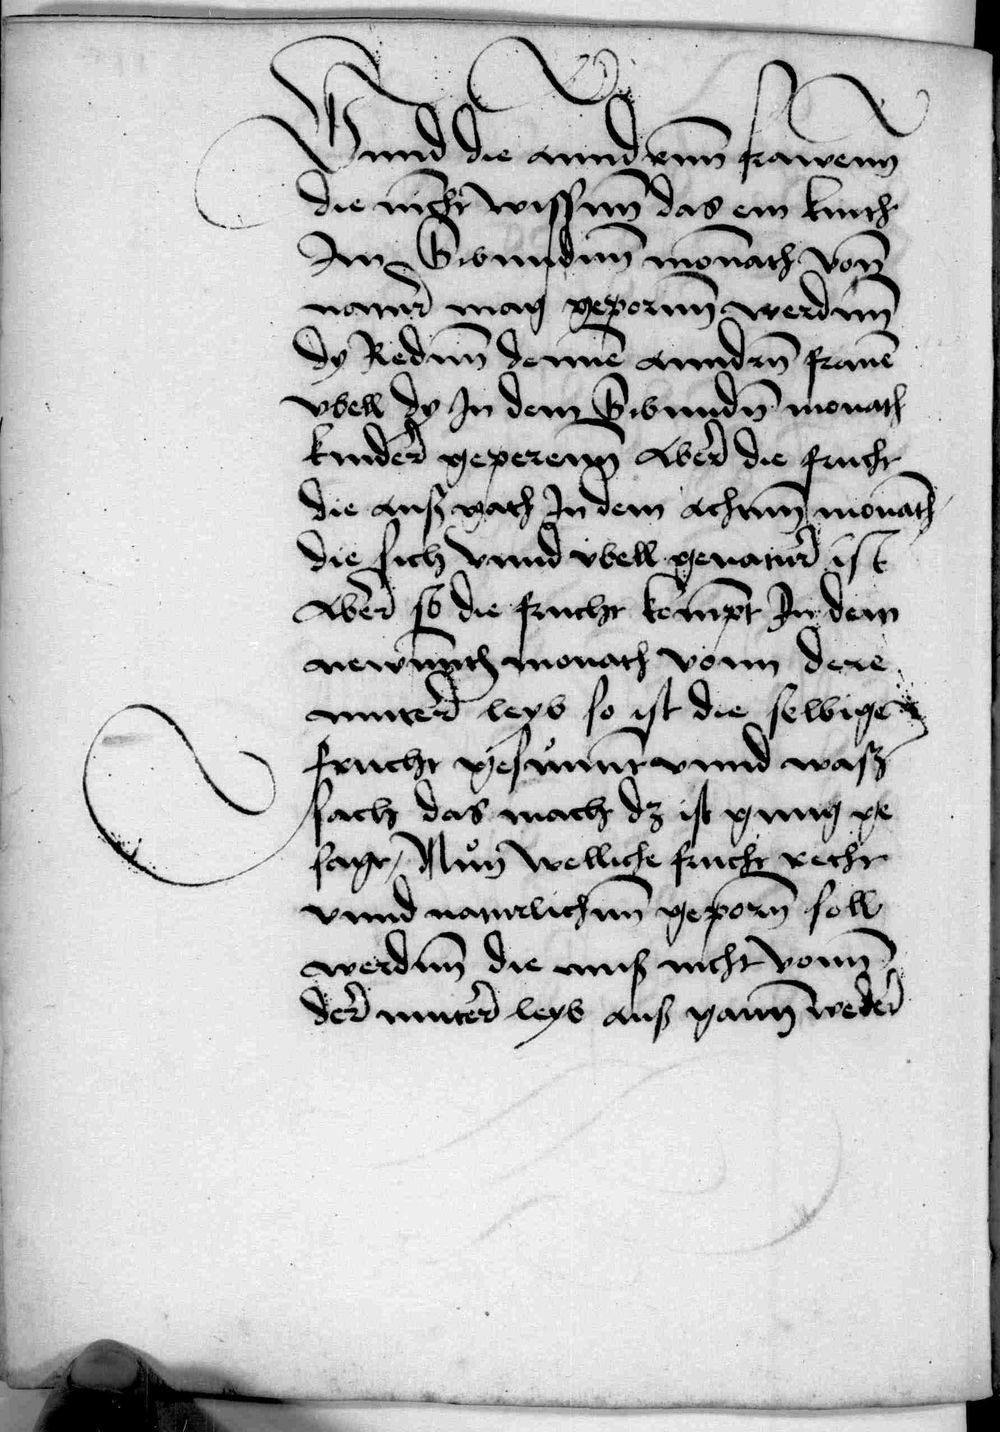 Vnnd die annderenn frawenn
die nicht wissenn das ein kinth
Im Sibenndenn monath vonn
naturd mag geporenn werdenn
dy Redenn dennē anndrn̄ frauē
vbell dy In dem Sibenndn̄ monath
kinder geperenn Aber die frucht
die auß gath In dem achtenn monath
die sich vnnd vbell genaturd ist
Aber so die frucht kompt In dem
newnnth monath vonn dere
mutter leyb so ist die selbige
frucht gesünnt vnnd waß
sach das mach dz ist gnug ge
sagt / Nün welliche frucht recht
vnnd naturlichenn geporn̄ soll
werdenn die muß nicht vonn
der mutter leyb auß gann weder